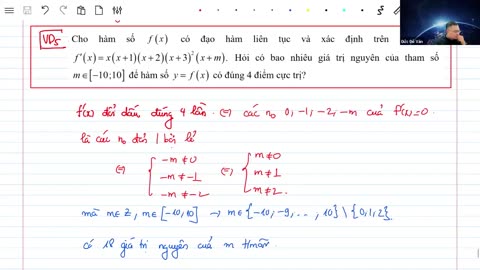 VD5 Cho hàm số f(x) có đạo hàm liên tục và xác định trên
f'(x) = x(x+1)(x+2)(x+3)²(x+m). Hỏi có bao nhiêu giá trị nguyên của tham số
m∈[−10;10] để hàm số y = f(x) có đúng 4 điểm cực trị?
f'(x) đổi dấu đúng 4 lần ⇔ các no 0, -1, -2, -m của f'(x)=0
là các no đơn / bội lẻ
⇔ { -m ≠ 0 ⇔ { m ≠ 0
-m ≠ -1 m ≠ 1
-m ≠ -2 m ≠ 2.
mà m∈Z, m∈[-10,10] → m∈{-10, -9, ..., 10} \ {0,1,2}.
có 18 giá trị nguyên của m